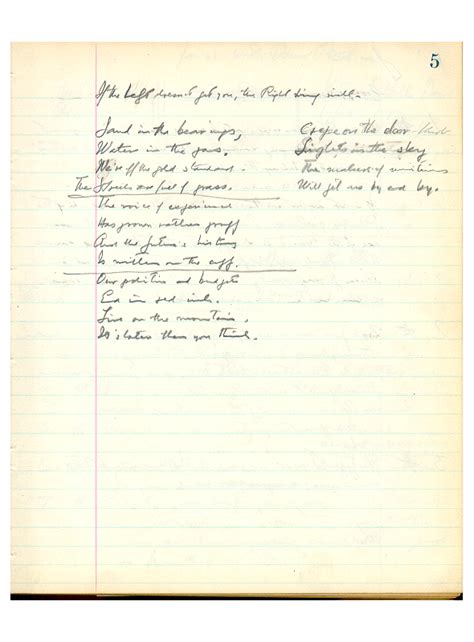 5
If the Left doesn't get you, the Right Wing will.
Sand in the bearings,
Water in the gas.
We're off the gold standard.
The Streets are full of grass.
The voice of experience
Has grown rather gruff
And the future's history
Is written on the cuff.
Our politics and budgets
End in red ink.
Fire on the mountains.
It's later than you think.
Crepe on the door
Lights in the sky
The makers of munitions
Will get us by and by.